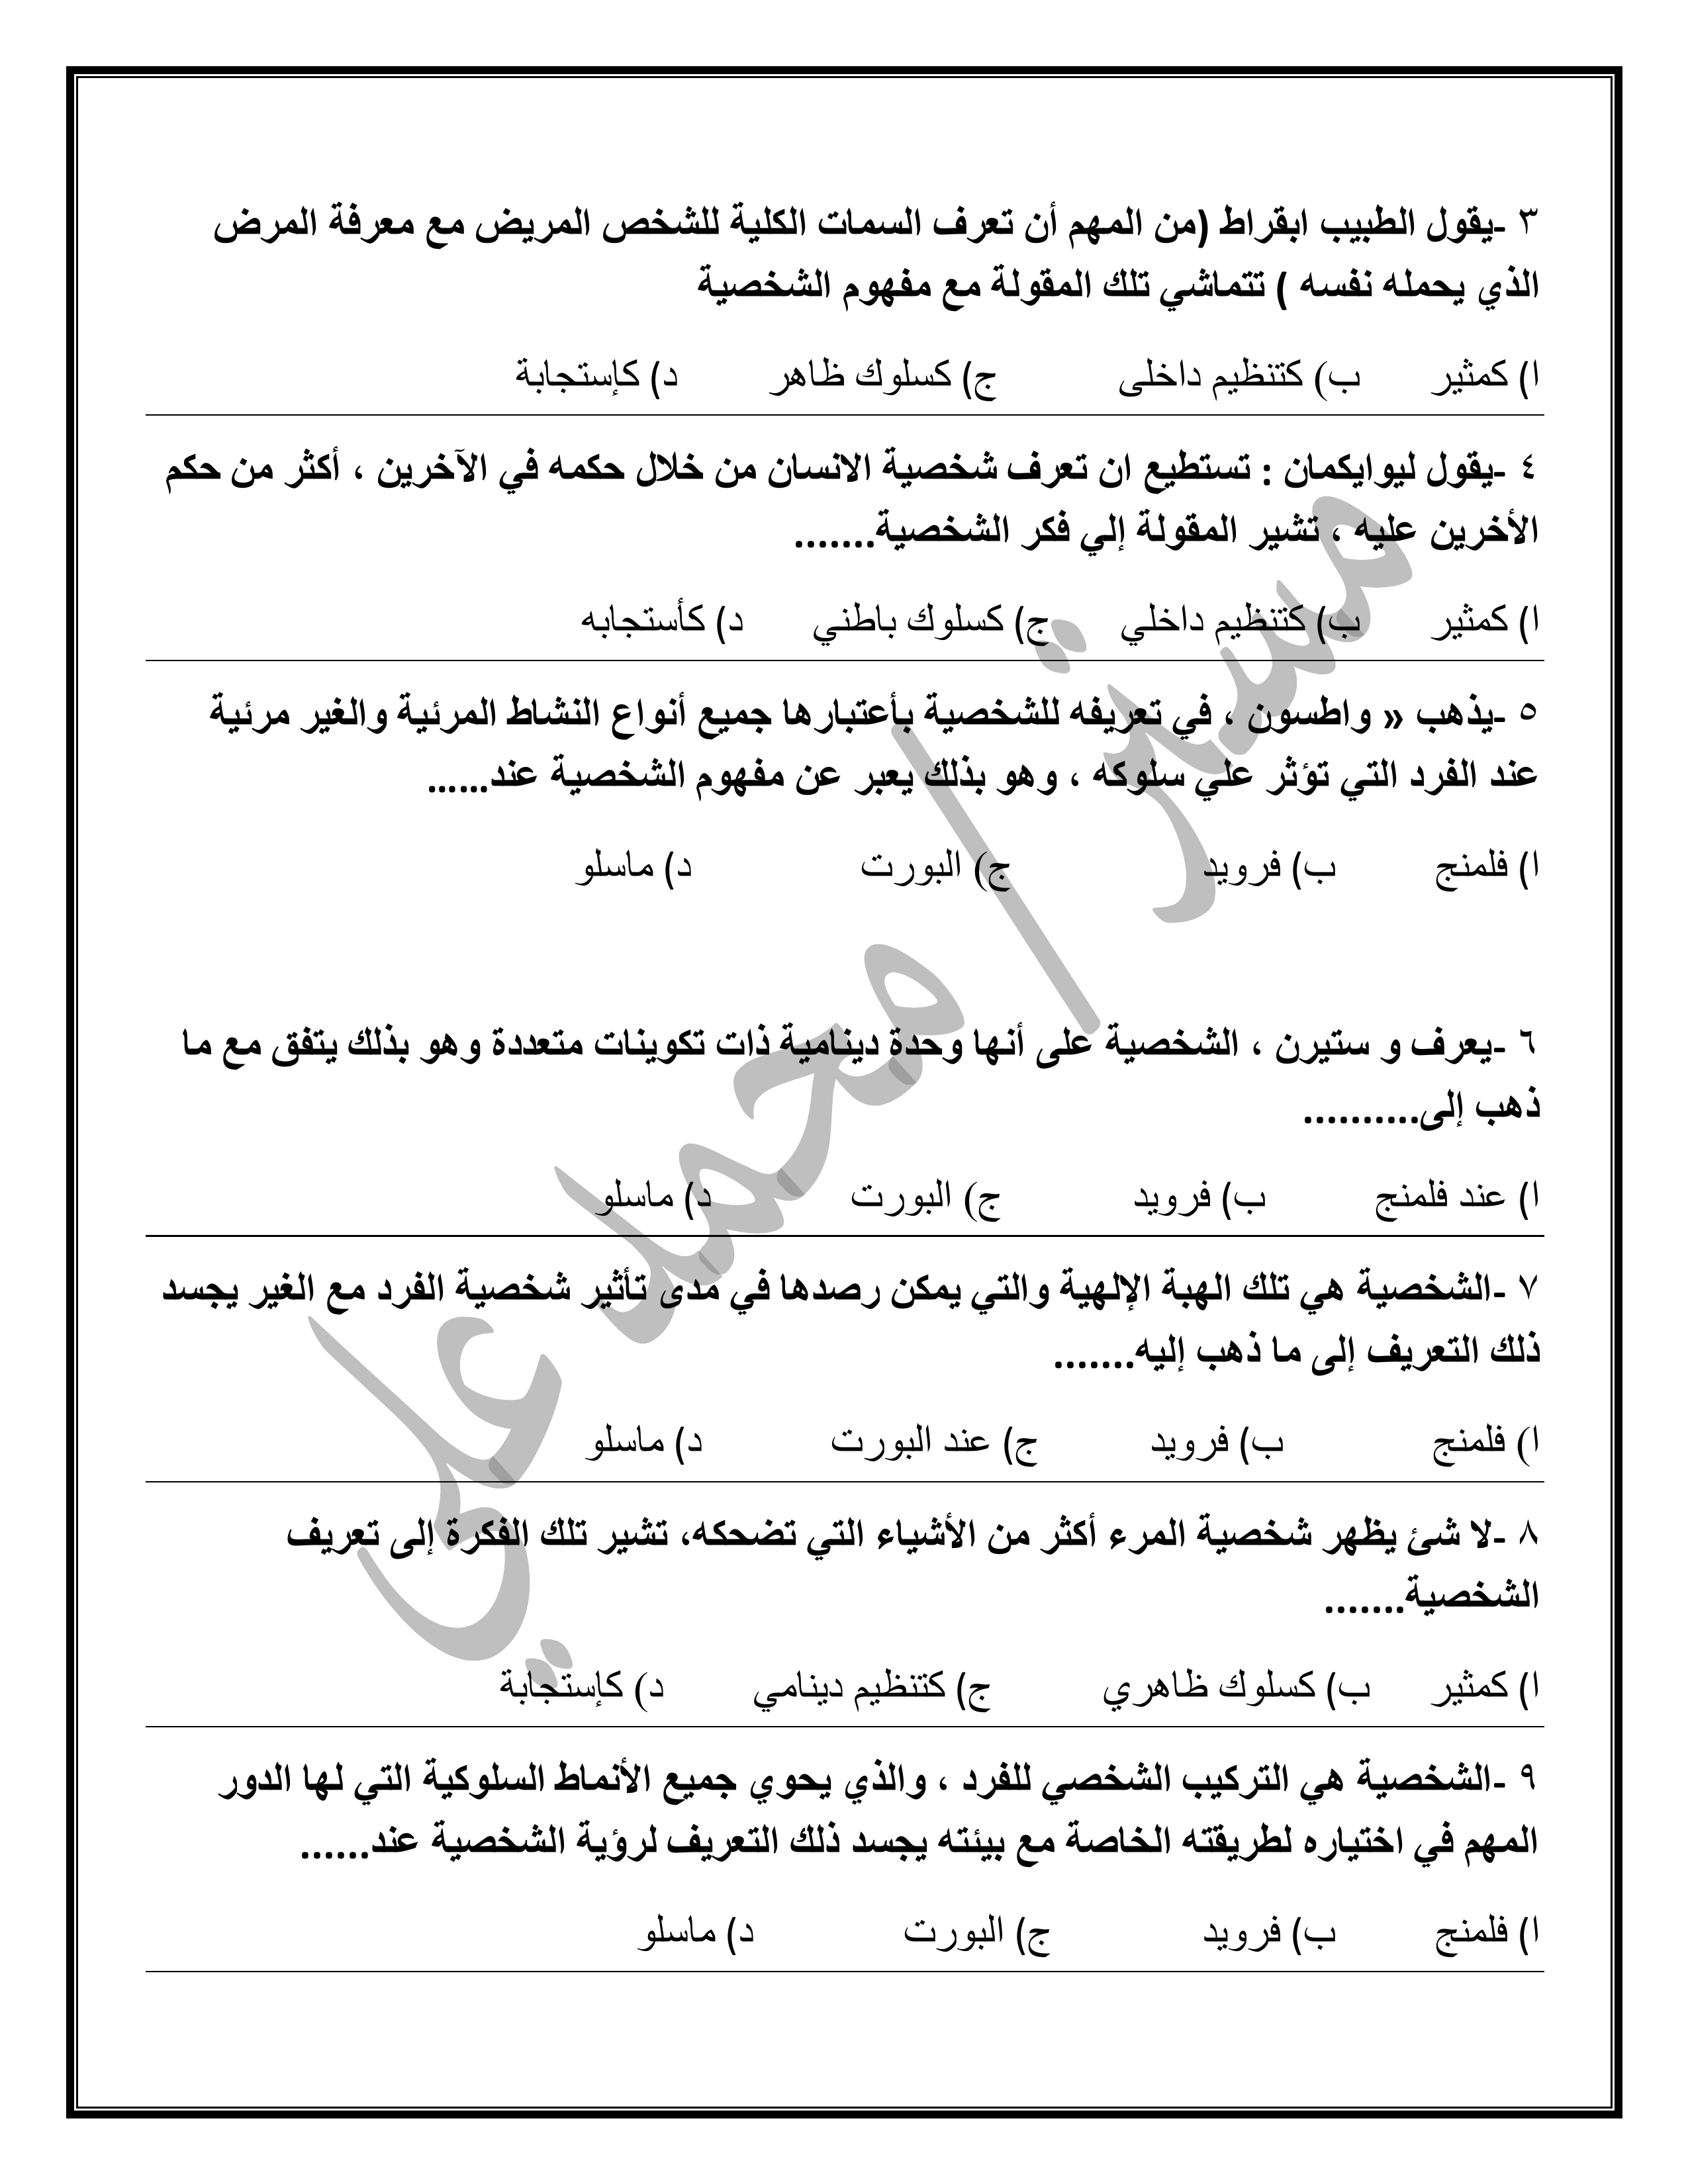 ٣ -يقول الطبيب ابقراط (من المهم أن تعرف السمات الكلية للشخص المريض مع معرفة المرض
الذي يحمله نفسه ) تتماشي تلك المقولة مع مفهوم الشخصية
ا) كمثير ب) كتنظيم داخلى ج) كسلوك ظاهر د) كإستجابة
٤ -يقول ليوايكمان : تستطيع ان تعرف شخصية الانسان من خلال حكمه في الآخرين ، أكثر من حكم
الأخرين عليه ، تشير المقولة إلي فكر الشخصية.......
ا) كمثير ب) كتنظيم داخلي ج) كسلوك باطني د) كأستجابه
٥ -يذهب « واطسون ، في تعريفه للشخصية بأعتبارها جميع أنواع النشاط المرئية والغير مرئية
عند الفرد التي تؤثر علي سلوكه ، وهو بذلك يعبر عن مفهوم الشخصية عند......
ا) فلمنج ب) فرويد ج) البورت د) ماسلو
٦ -يعرف و ستيرن ، الشخصية على أنها وحدة دينامية ذات تكوينات متعددة وهو بذلك يتفق مع ما
ذهب إلى..........
ا) عند فلمنج ب) فرويد ج) البورت د) ماسلو
٧ -الشخصية هي تلك الهبة الإلهية والتي يمكن رصدها في مدى تأثير شخصية الفرد مع الغير يجسد
ذلك التعريف إلى ما ذهب إليه.......
ا) فلمنج ب) فرويد ج) عند البورت د) ماسلو
٨ -لا شئ يظهر شخصية المرء أكثر من الأشياء التي تضحكه، تشير تلك الفكرة إلى تعريف
الشخصية.......
ا) كمثير ب) كسلوك ظاهري ج) كتنظيم دينامي د) كإستجابة
٩ -الشخصية هي التركيب الشخصي للفرد ، والذي يحوي جميع الأنماط السلوكية التي لها الدور
المهم في اختياره لطريقته الخاصة مع بيئته يجسد ذلك التعريف لرؤية الشخصية عند......
ا) فلمنج ب) فرويد ج) البورت د) ماسلو
مستر/محمد علي